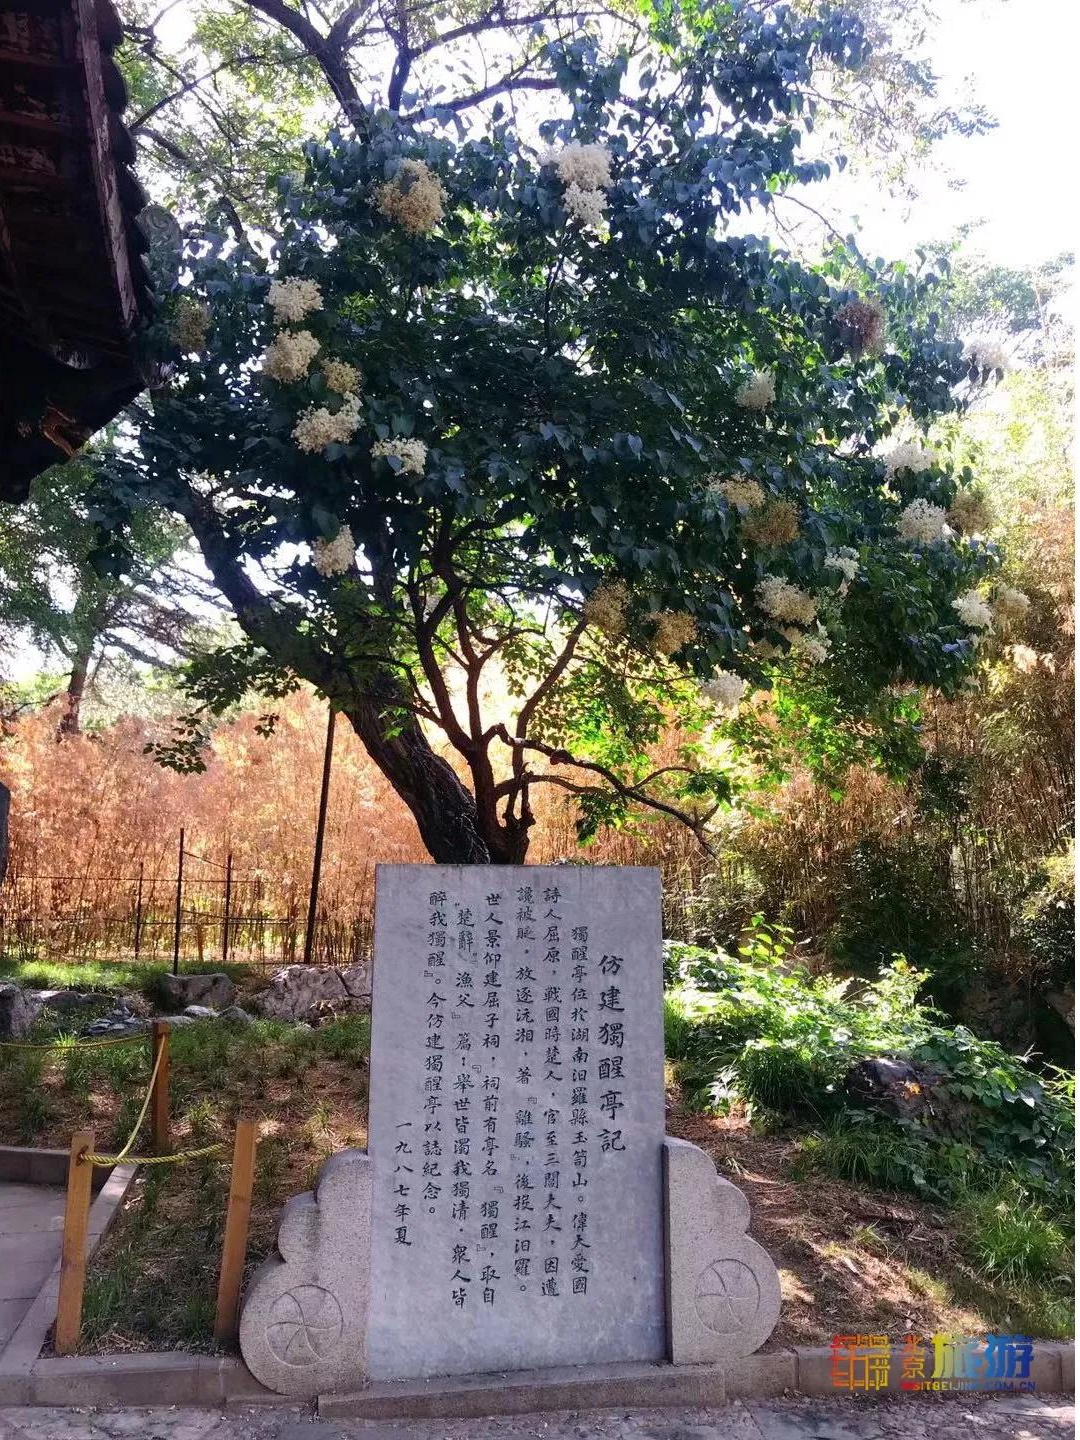 仿建獨醒亭記
獨醒亭位於湖南汨羅縣玉笥山。偉大愛國
詩人屈原，戰國時楚人，官至三閭大夫，因遭
讒被貶，放逐沅湘，著『離騷』，後投江汨羅。
世人景仰建屈子祠，祠前有亭名『獨醒』，取自
『楚辭』漁父』篇：『舉世皆濁我獨清，衆人皆
醉我獨醒』。今仿建獨醒亭以誌紀念。
一九八七年夏
北京旅游
VISITBEIJING.COM.CN